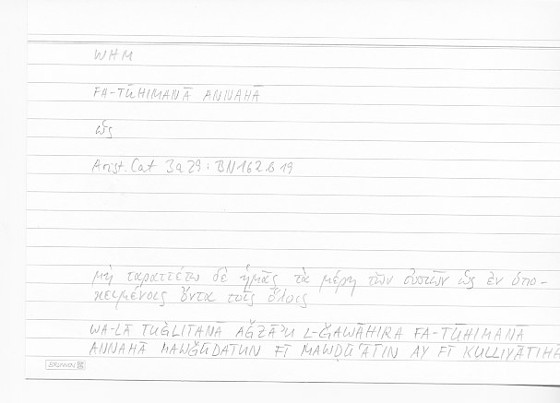 WHM
FA-TŪHIMANĀ ANNAHĀ
ὡς
Arist. Cat 3a29 : BN162b19
μὴ ταραττέτω δὲ ἡμᾶς τὰ μέρη τῶν οὐσιῶν ὡς ἐν ὑπο-
κειμένοις ὄντα τοῖς ὅλοις
WA-LĀ TUĠLITANĀ AǦZĀʾU L-ǦAWĀHIRA FA-TŪHIMANĀ
ANNAHĀ MAWǦŪDATUN FĪ MAWḌŪʿĀTIN AY FĪ KULLIYĀTIHĀ
BRUNNEN